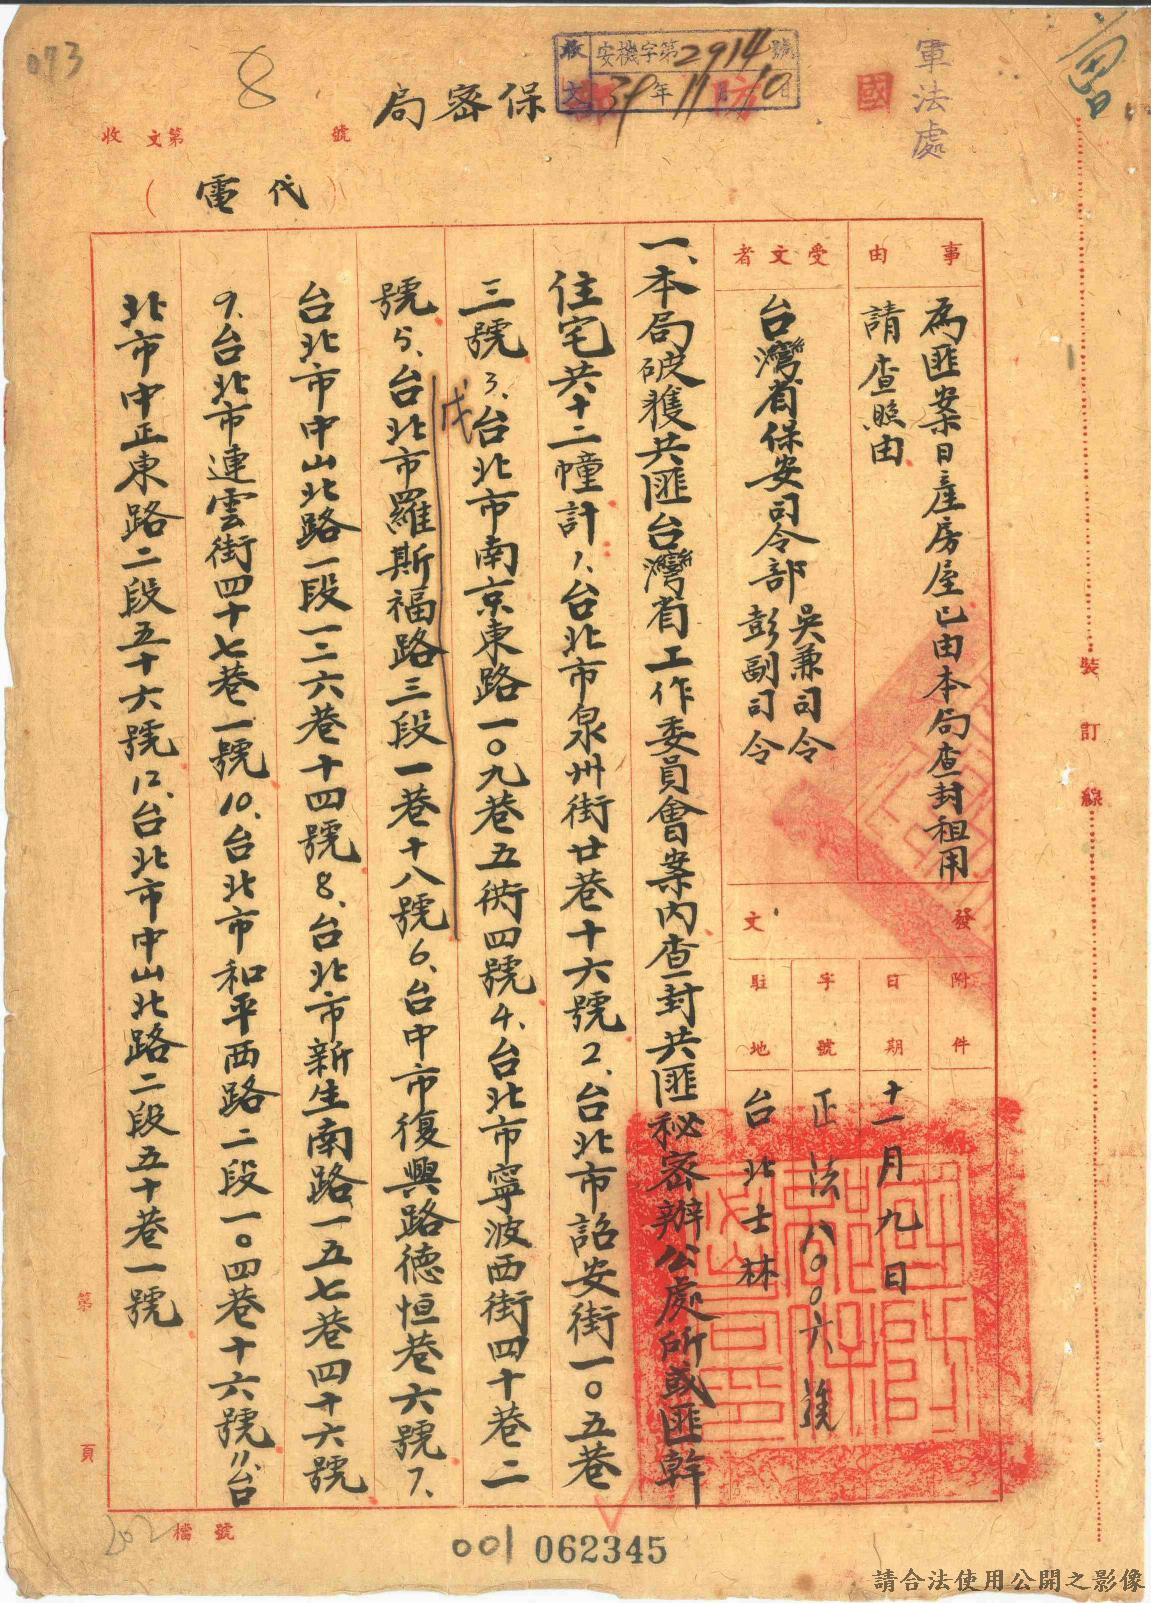 073
8
收文
安機字第2914號
39年11月10日
軍法處
國防
保密局
收文第 號
(代電)
事由
為匪案日產房屋已由本局查封租用
請查照由
受文者
台灣省保安司令部 吳兼司令
彭副司令
發文
附件
日期
十一月九日
字號
正法八〇〇六號
駐地
台北士林
一、本局破獲共匪台灣省工作委員會案內查封共匪秘密辦公處所或匪幹
住宅共十二幢計1、台北市泉州街廿巷十六號2、台北市詔安街一〇五巷
三號3、台北市南京東路一〇九巷五衖四號4、台北市寧波西街四十巷二
戊
號5、台北市羅斯福路三段一巷十八號6、台中市復興路德恒巷六號7、
台北市中山北路一段一二六巷十四號8、台北市新生南路一五七巷四十六號
9、台北市連雲街四十七巷一號10、台北市和平西路二段一〇四巷十六號11、台
北市中正東路二段五十六號12、台北市中山北路二段五十巷一號
裝訂線
第 頁
檔號
202
001 062345
請合法使用公開之影像